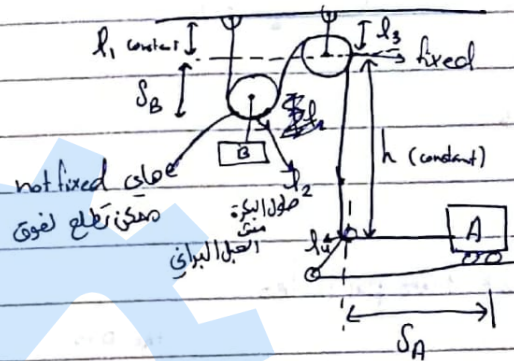 l₁ constant
l₃
fixed
S_B
h (constant)
B
l₂
not fixed هاي
ممكن تطلع لفوق
طول البكرة
مش
الحبل البراني
l₄
A
S_A